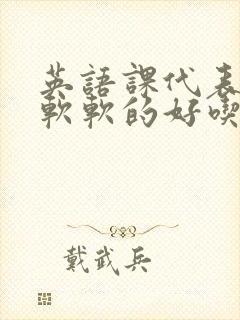 英語課代表
軟軟的好喫
戴武兵